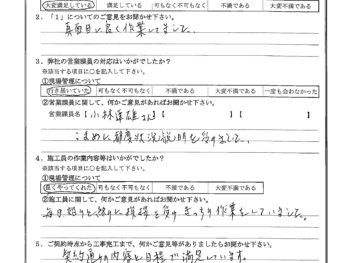 大変満足している 満足している 可もなく不可もなく 不満である 大変不満である
2.「1」についてのご意見をお聞かせ下さい。
真面目に良く作業してました。
3．弊社の営業課員の対応はいかがでしたか？
※該当する項目に○を記入して下さい。
①現場管理について
行き届いていた 可もなく不可もなく 不満である 大変不満である 一度も会わなかった
②営業課員に関して、何かご意見があればお聞かせ下さい。
営業課員名【小林 さん】【 】
こまめに 状況説明を
4．施工員の作業内容等はいかがでしたか？
※該当する項目に○を記入して下さい。
①現場管理について
良くやってくれた 可もなく不可もなく 不満である 大変不満である
②施工員に関して、何かご意見があればお聞かせ下さい。
毎日 挨拶を きっちり作業をしていました。
5．ご契約時点から工事完工まで、何かご意見等がありましたらお聞かせ下さい。
契約通りの内容と日程で満足しています。